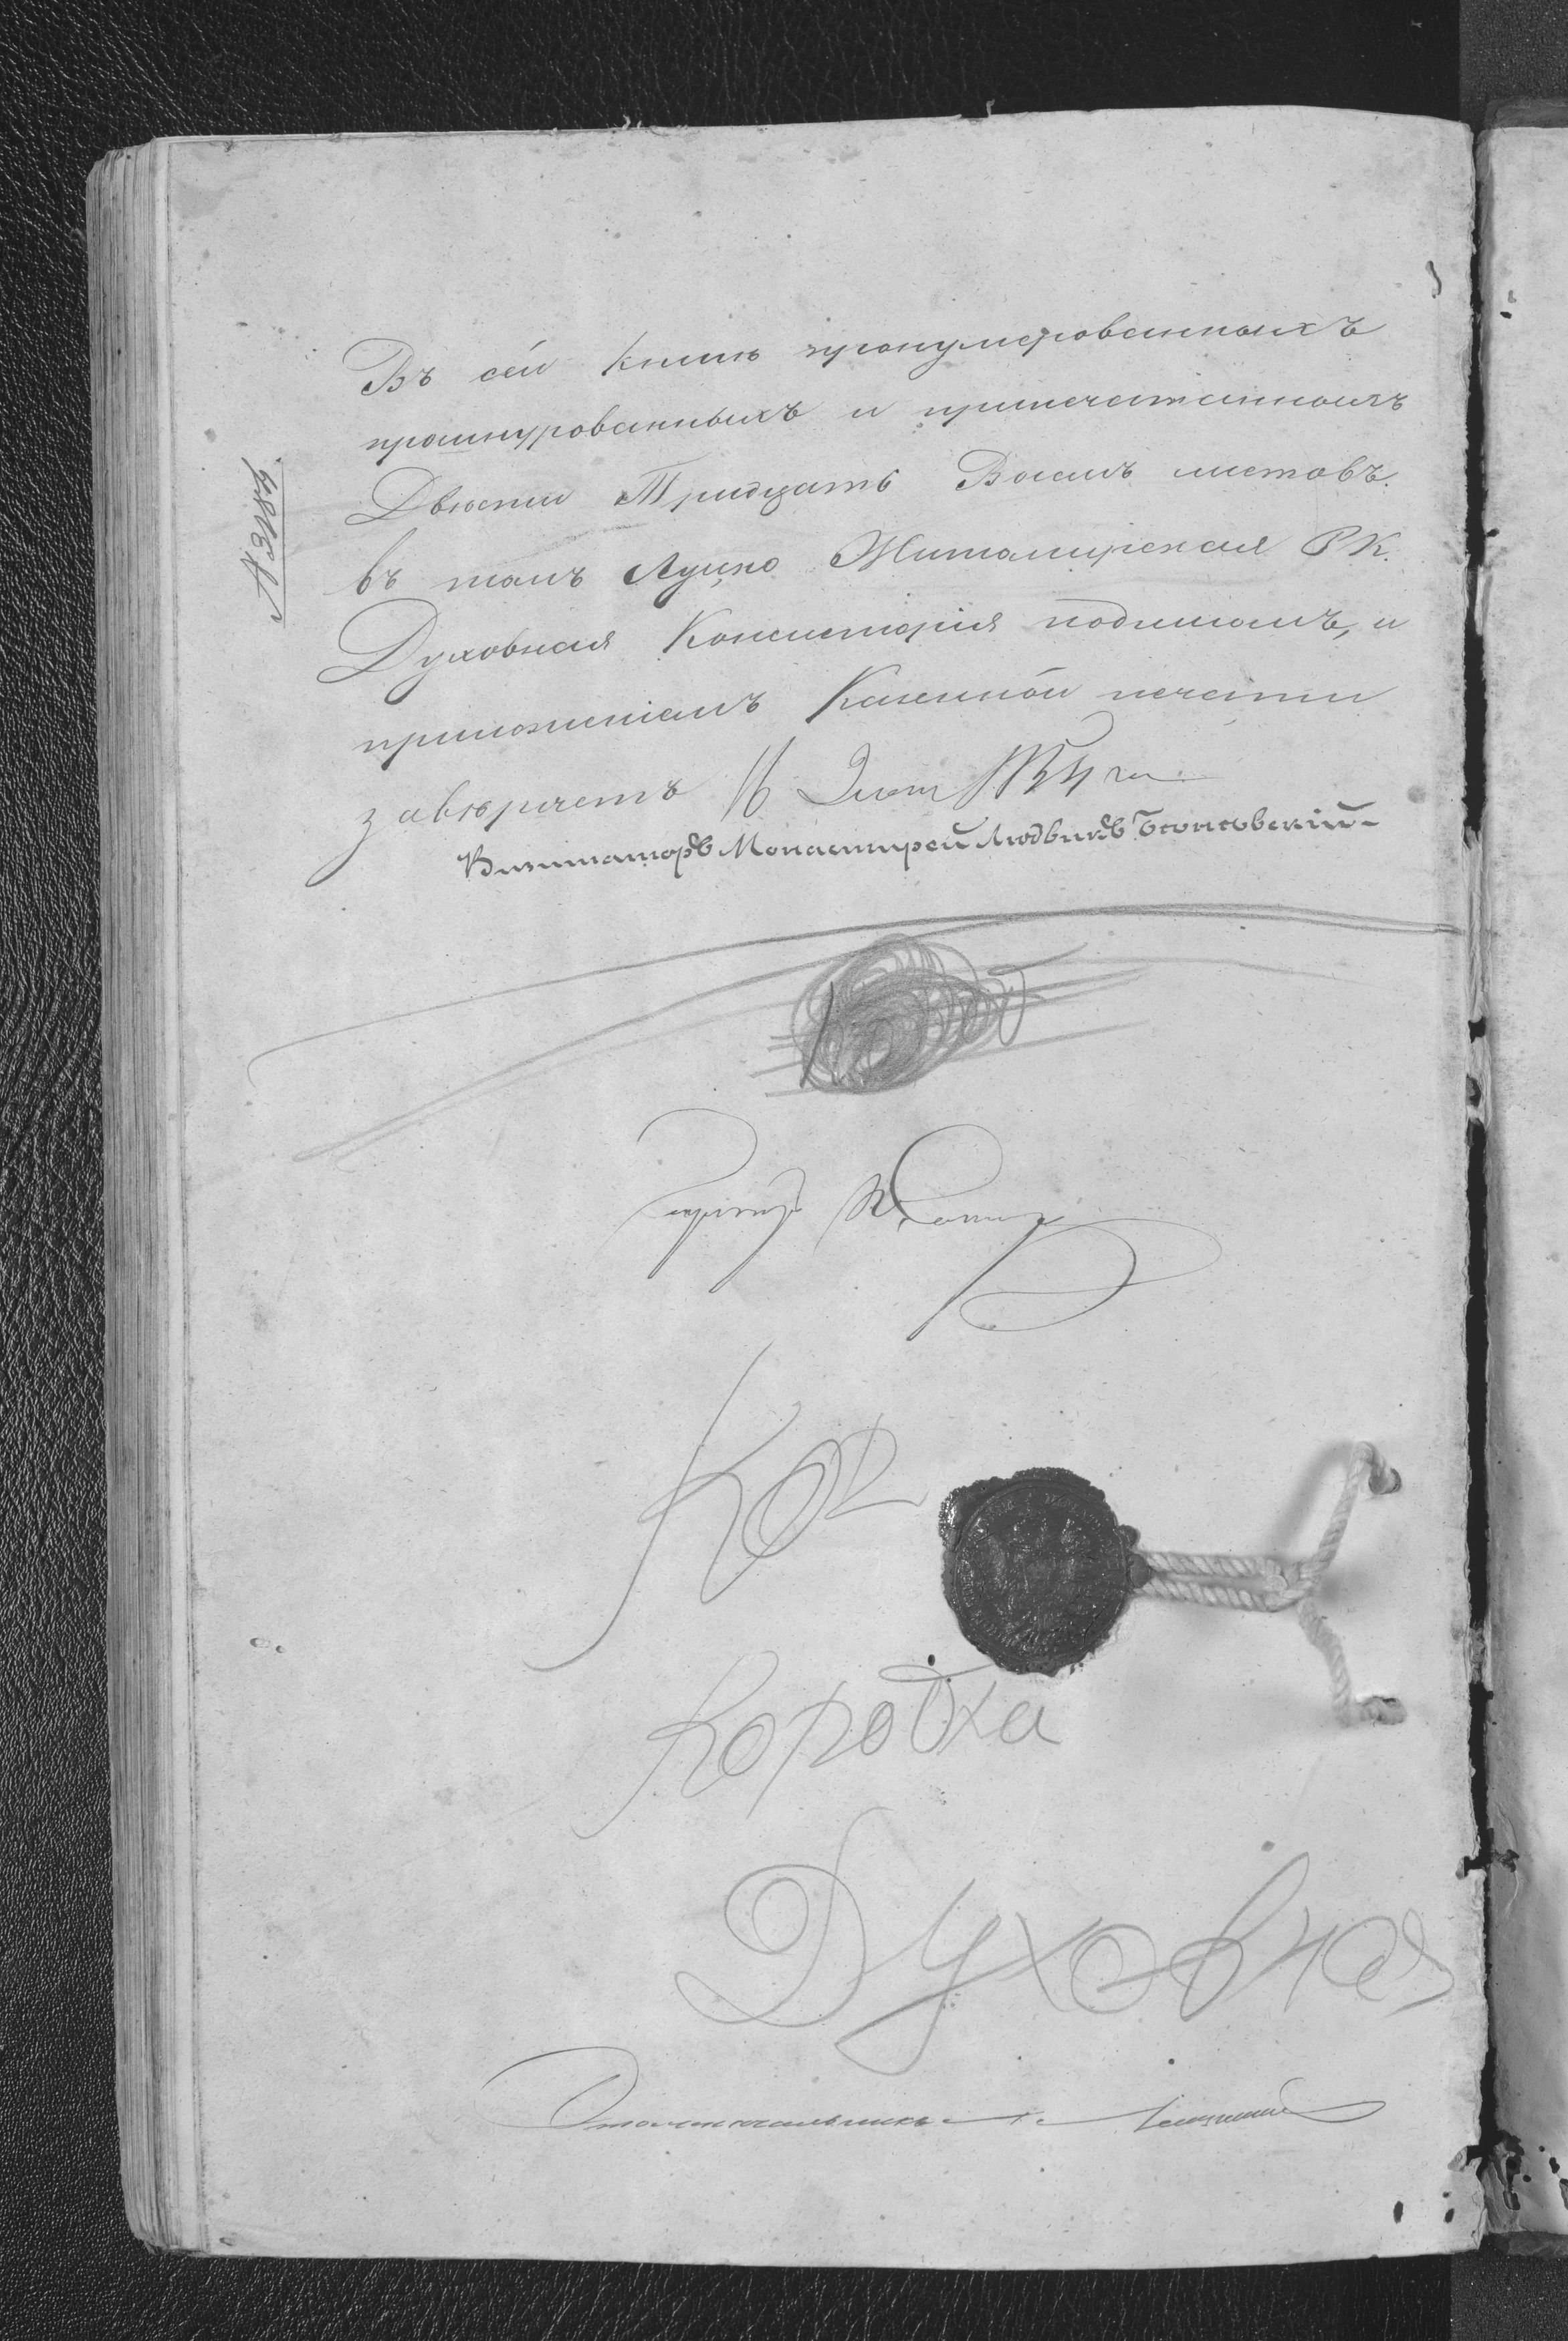 № 3184.
Въ сей книгѣ пронумерованныхъ
прошнурованныхъ и припечатанныхъ
Двѣсти Тридцать Восемь листовъ.
въ томъ Луцко Житомирская Р К.
Духовная Консисторія подписомъ, и
приложеніемъ Казенной печати
завѣряетъ 16
Визитаторъ Монастырей Людвикъ
Секретарь
Коробка
Духовная
Столоначальникъ